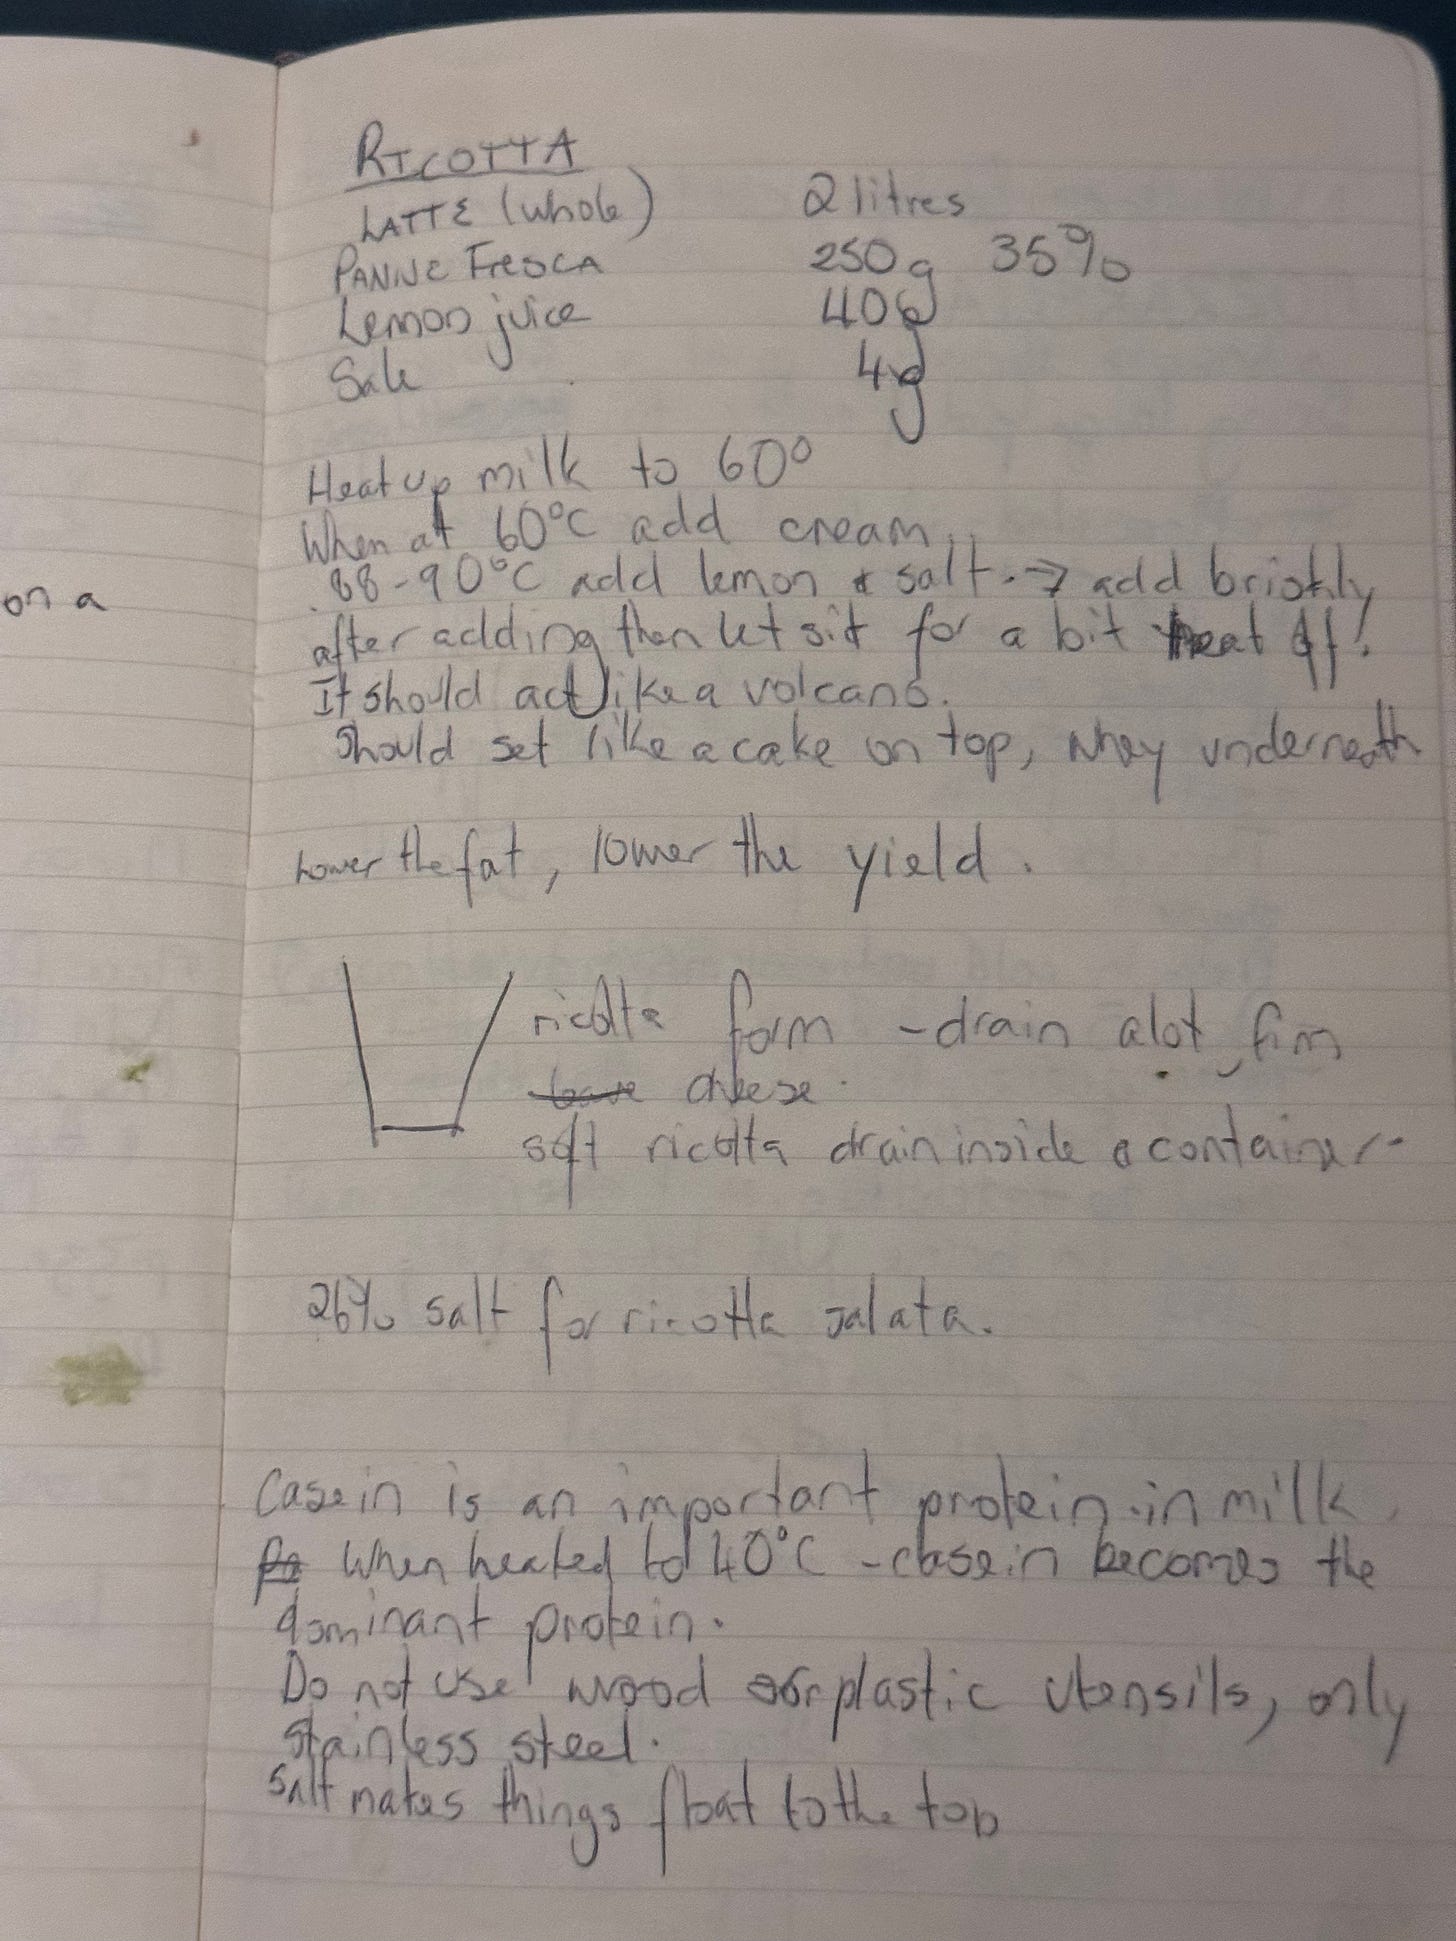 RICOTTA
LATTE (whole) 2 litres
PANNE FresCA 250g 35%
Lemon juice 40g
Sale 4g
Heat up milk to 60°
When at 60°C add cream.
88-90°C add lemon & salt. → add briskly
after adding then let sit for a bit Heat off!
It should act like a volcano.
Should set like a cake on top, whey underneath
Lower the fat, lower the yield.
ricotta form - drain alot, firm
cheese.
soft ricotta drain inside a container.
26% salt for ricotta salata.
on a
Casein is an important protein in milk.
When heated to 40°C - casein becomes the
dominant protein.
Do not use wood or plastic utensils, only
stainless steel.
Salt makes things float to the top